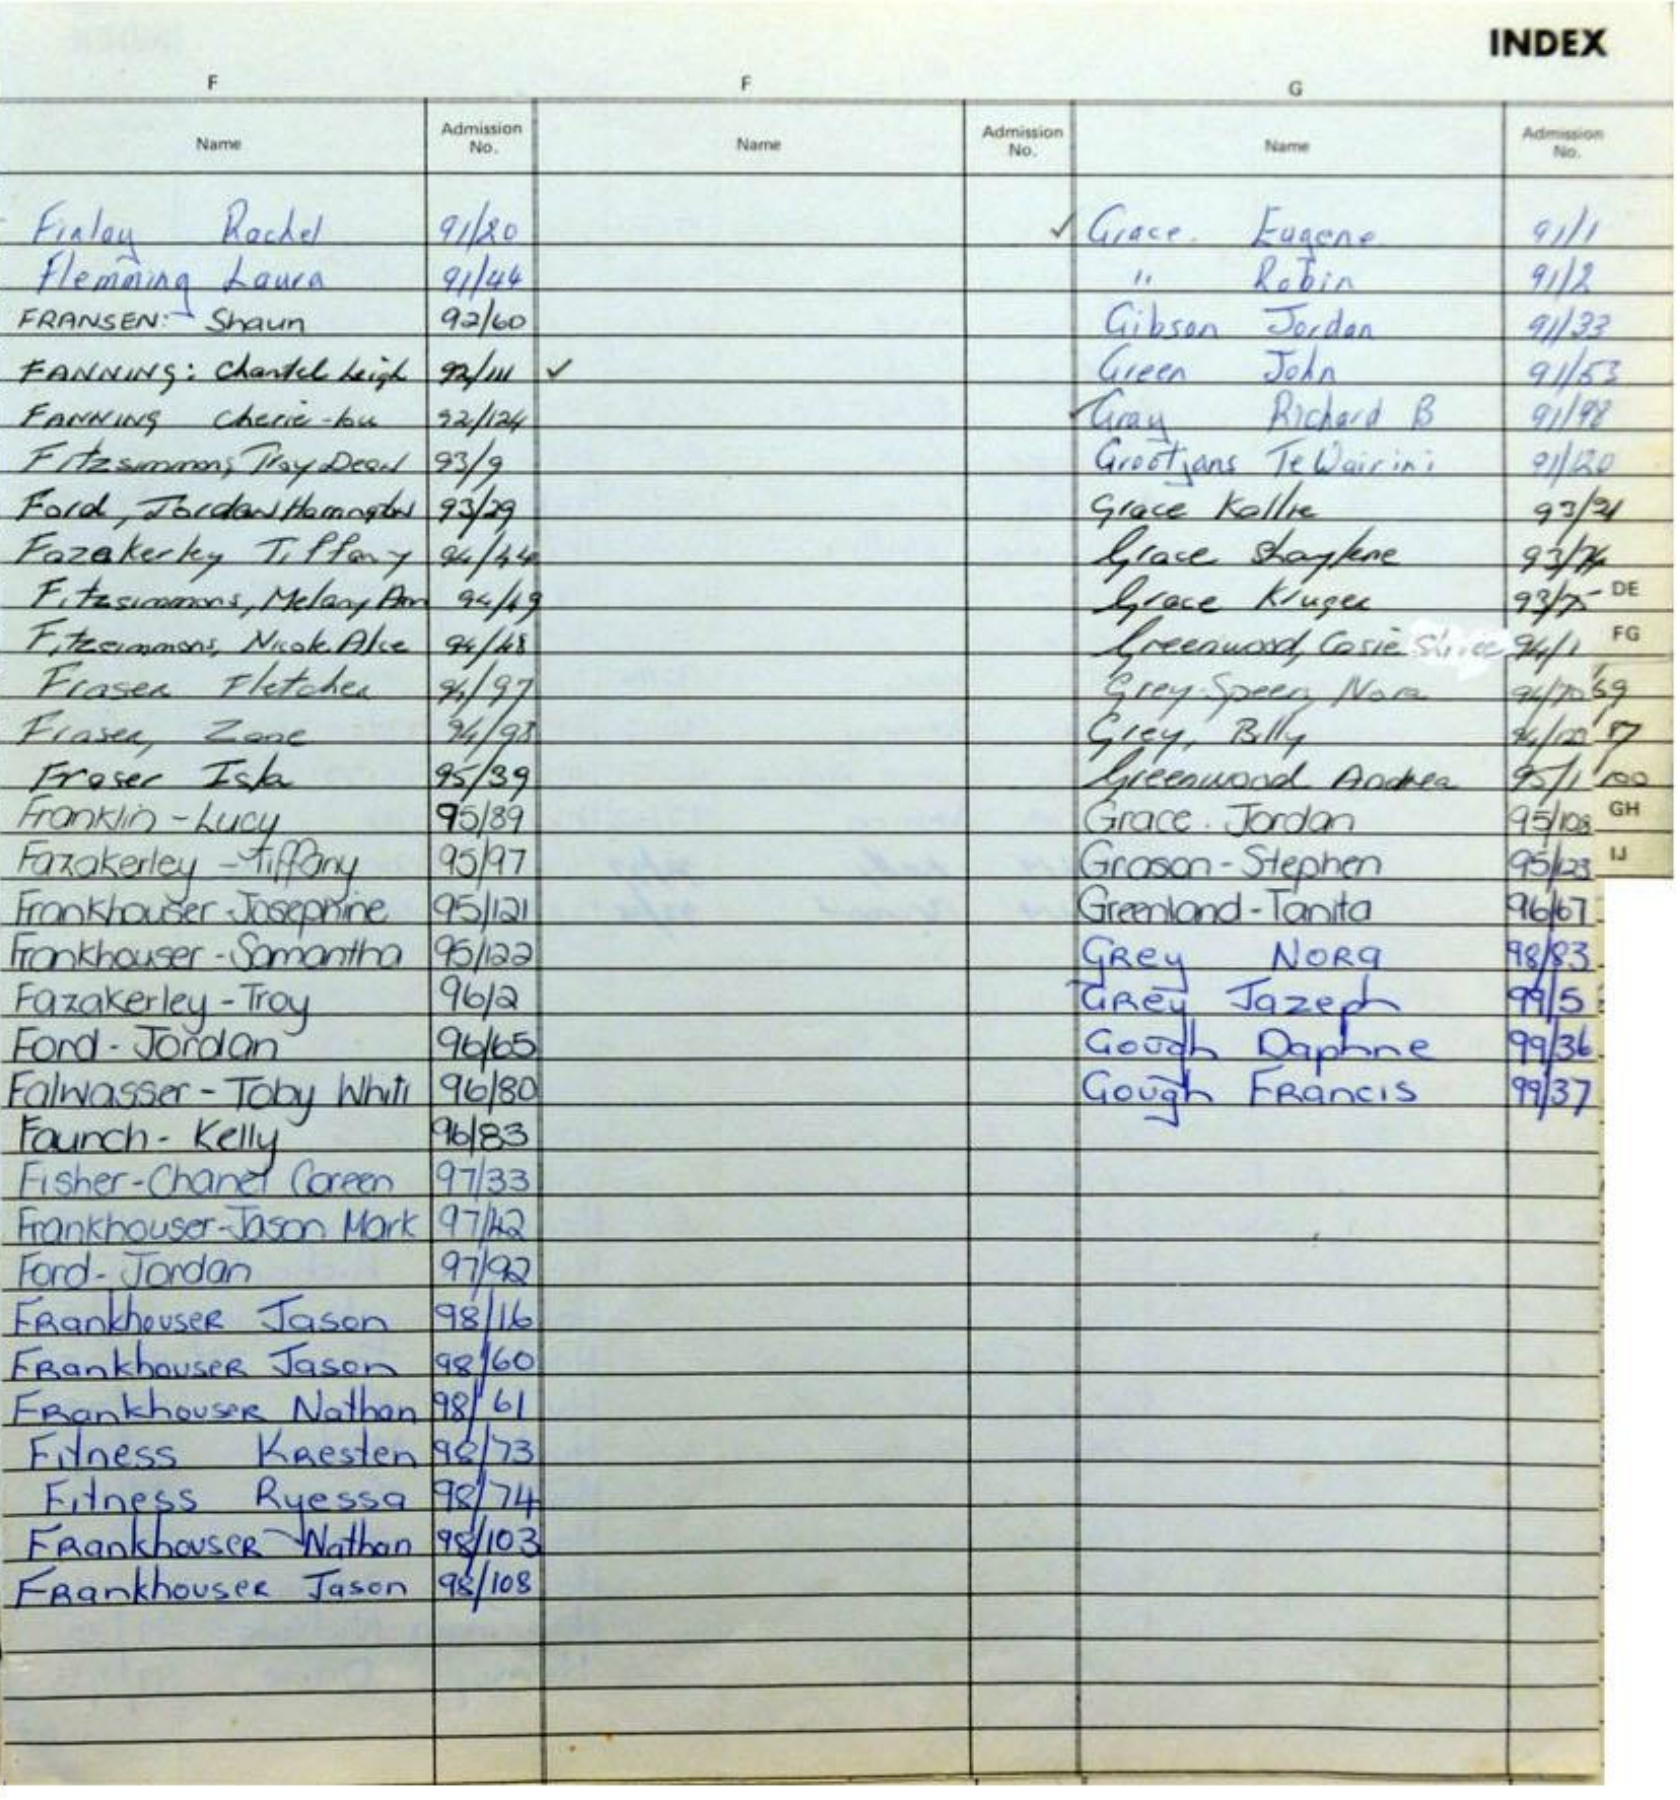 INDEX
F F G
Name Admission No. Name Admission No. Name Admission No.
Finlay Rachel 91/20 ✓ Grace. Eugene 91/1
Flemming Laura 91/44 " Robin 91/2
FRANSEN: Shaun 92/60 Gibson Jordan 91/33
FANNING: Chantel Leigh 92/111 ✓ Green John 91/53
FANNING Cherie-Lou 92/124 ✓ Gray Richard B 91/98
Fitzsimmons, Troy Dean 93/9 Grootjans Te Wairini 91/120
Ford, Jordan 93/29 Grace Kallie 93/31
Fazakerley Tiffany 94/44 Grace Shaylene 93/74
Fitzsimmons, Melany Ann 94/49 Grace Kruger 93/75 DE
Fitzsimmons, Nicole Alice 94/48 Greenwood, Casie 94/1 FG
Fraser Fletcher 94/97 Grey-Speer, Nora 94/70 69
Fraser, Zane 94/98 Grey, Billy 94/122 87
Fraser Isla 95/39 Greenwood Andrea 95/1 100
Franklin - Lucy 95/89 Grace. Jordan 95/108 GH
Fazakerley - Tiffany 95/97 Grason - Stephen 95/123 IJ
Frankhouser Josephine 95/121 Greenland - Tanita 96/67
Frankhouser - Samantha 95/122 Grey Nora 98/83
Fazakerley - Troy 96/2 Grey Jazeph 99/5
Ford - Jordan 96/65 Gough Daphne 99/36
Falwasser - Toby Whiti 96/80 Gough Francis 99/37
Faunch - Kelly 96/83
Fisher - Chanel Coreen 97/33
Frankhouser - Jason Mark 97/42
Ford - Jordan 97/92
Frankhouser Jason 98/16
Frankhouser Jason 98/60
Frankhouser Nathan 98/61
Fitness Kresten 98/73
Fitness Ryessa 98/74
Frankhouser Nathan 98/103
Frankhouser Jason 98/108